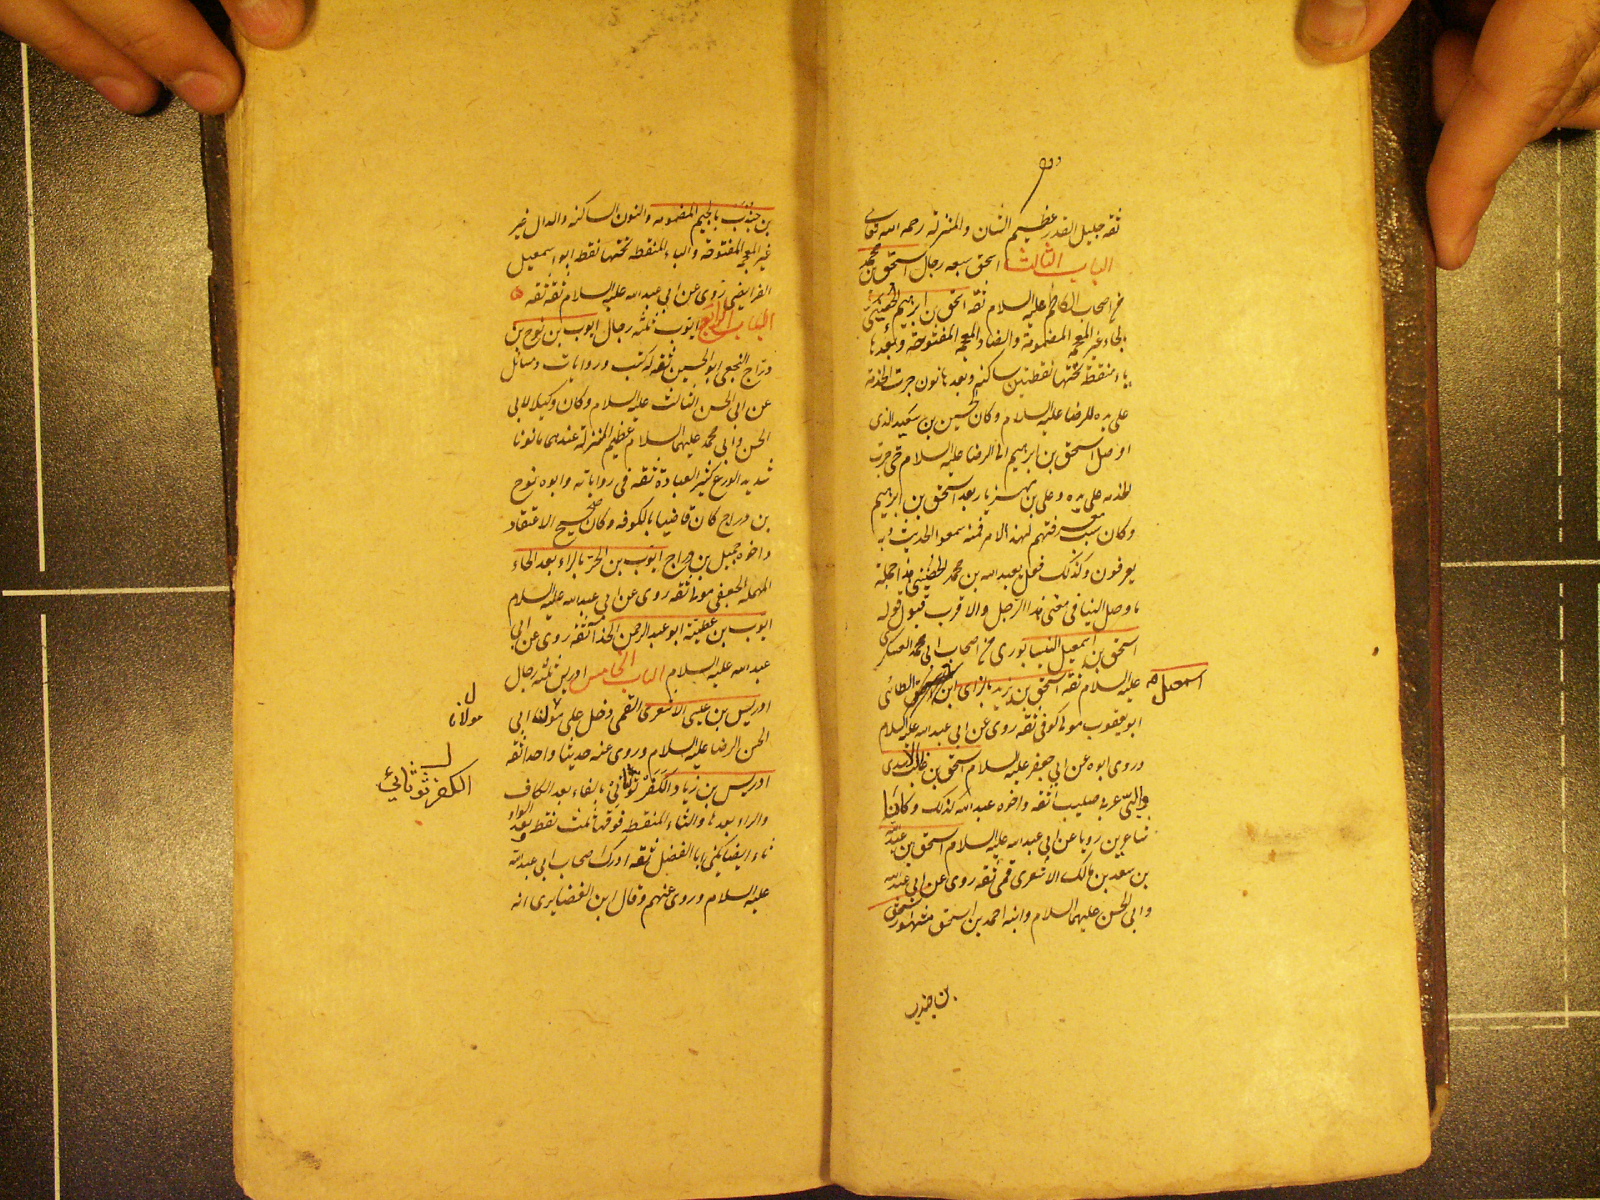 ثقه جليل القدر عظيم الشان والمنزلة رحمه الله تعالى
الباب الثالث اسحق سبعه رجال اسحق بن محمد
من اصحاب الكاظم عليه السلام ثقه اسحق بن ابرهيم الحضينى
بالحاء غير المعجمه المضمومة والضاد المعجمه المفتوحة وبعدها
ياء منقطة تحتها نقطتين ساكنه وبعدها نون جرت الخدمة
على يده للرضا عليه السلام وكان الحسين بن سعيد الذى
اوصل اسحق بن ابرهيم الى الرضا عليه السلام حتى جرت
الخدمه على يده وعلى بن مهزيار بعد اسحق بن ابرهيم
وكان سبب معرفتهم لهذا الامر فمنه سمعوا الحديث وبه
يعرفون وكذلك فعل بعبد الله بن محمد الحضينى هذا جملة
ما وصل الينا فى معنى هذا الرجل والاقرب قبول قوله
اسحق بن اسمعيل النيسابورى من اصحاب ابى محمد العسكرى
عليه السلام ثقه اسحق بن يزيد بالزاى ابن اسحق الطائى
اسمعيل
ابو يعقوب مولى كوفى ثقه روى عن ابى عبد الله عليه السلام
وروى ابوه عن ابى جعفر عليه السلام اسحق بن غالب الاسدى
والبى عربى صليب ثقه واخوه عبد الله كذلك وكانا
شاعرين رويا عن ابى عبد الله عليه السلام اسحق بن عبد الله
بن سعد بن مالك الاشعرى قمى ثقه روى عن ابى عبد الله
وابى الحسن عليهما السلام وابنه احمد بن اسحق مشهور اسحق
بن جندب
بن جندب بالجيم المضمومه والنون الساكنه والدال غير
غير المعجمه المفتوحة والباء المنقطه تحتها نقطه ابو اسمعيل
الفرايضى روى عن ابى عبد الله عليه السلام ثقه ثقه
الباب الرابع ايوب ثلثه رجال ايوب بن نوح بن
دراج النخعى ابو الحسين ثقه له كتب وروايات ومسائل
عن ابى الحسن الثالث عليه السلام وكان وكيلا لابى
الحسن وابى محمد عليهما السلام عظيم المنزلة عندهما مامونا
شديد الورع كثير العبادة ثقه فى رواياته وابوه نوح
بن دراج كان قاضيا بالكوفه وكان صحيح الاعتقاد
واخوه جميل بن دراج ايوب بن الحر بالراء بعد الحاء
المهمله الجعفى مولى ثقه روى عن ابى عبد الله عليه السلام
ايوب بن عطية ابو عبد الرحمن الحذاء ثقه روى عن ابى
عبد الله عليه السلام الباب الخامس ادريس ثلثه رجال
ادريس بن عيسى الاشعرى القمى دخل على مولنا ابى
مولانا
الحسن الرضا عليه السلام وروى عنه حديثا واحدا ثقه
ادريس بن زياد الكفرثوثائى بالفاء بعد الكاف
الكفرثوثائي
والراء بعدها والثاء المنقطه فوقها ثلث نقط بعد الواو
ثاء ايضا يكنى ابا الفضل ثقه ادرك اصحاب ابى عبد الله
عليه السلام وروى عنهم وقال ابن الغضايرى انه